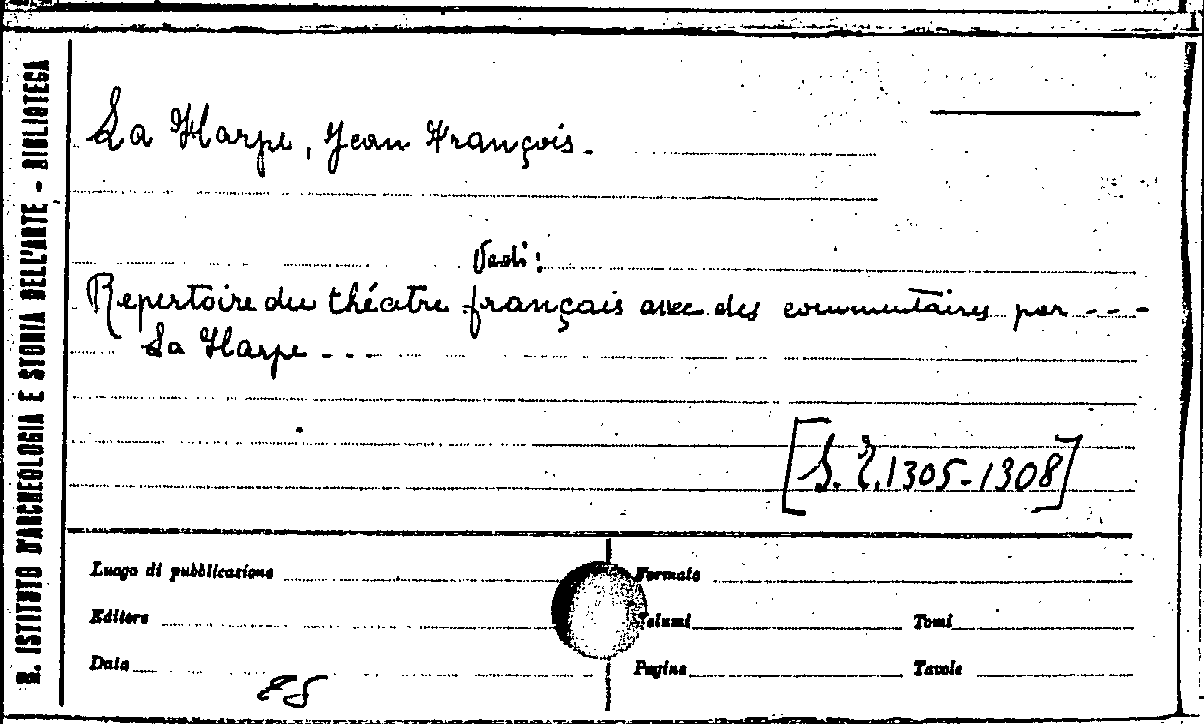 R. ISTITUTO D'ARCHEOLOGIA E STORIA DELL'ARTE - BIBLIOTECA
La Harpe, Jean François.
Vedi:
Repertoire du théatre français avec des commentaires par ---
La Harpe ---
1305-1308]
Luogo di pubblicazione
Formato
Editore
Volumi
Tomi
Data
Pagine
Tavole